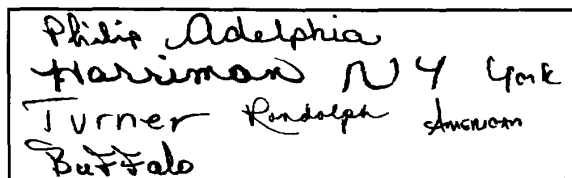 Philip Adelphia
Harriman NY York
Turner Randolph American
Buffalo